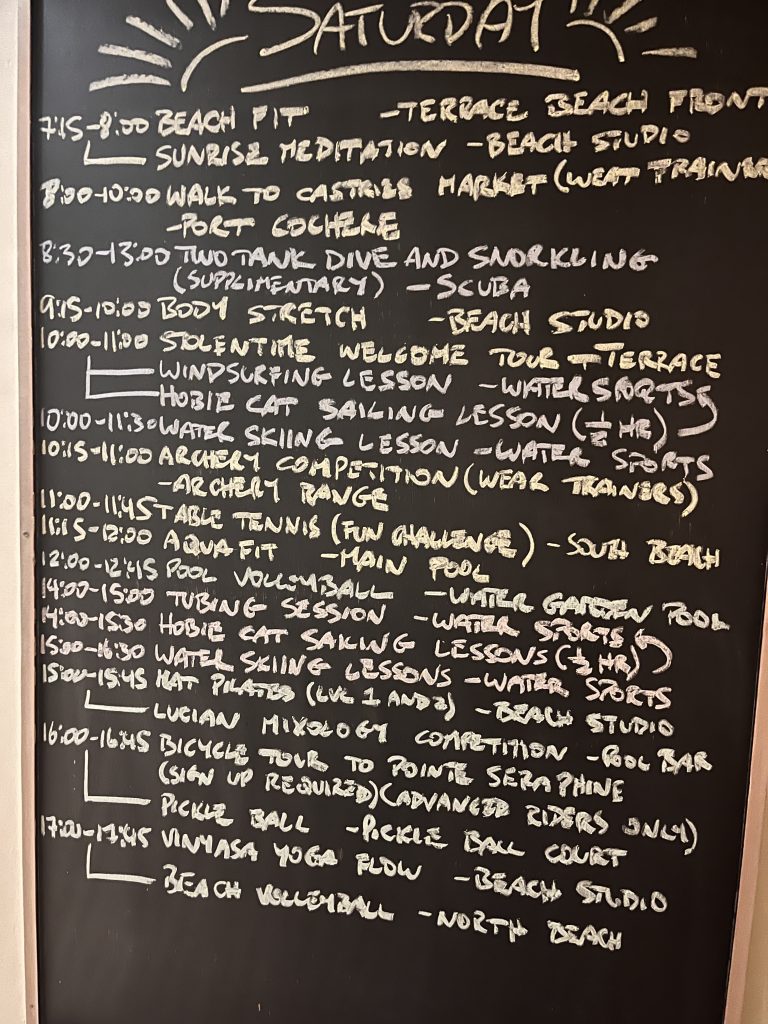 SATURDAY
7:15-8:00 BEACH FIT -TERRACE BEACH FRONT
SUNRISE MEDITATION -BEACH STUDIO
8:00-10:00 WALK TO CASTRIES MARKET (WEAT TRAINER
-PORT COCHERE
8:30-13:00 TWO TANK DIVE AND SNORKLING
(SUPPLIMENTARY) -SCUBA
9:15-10:00 BODY STRETCH -BEACH STUDIO
10:00-11:00 STOLENTIME WELCOME TOUR -TERRACE
WINDSURFING LESSON -WATERSPORTS
HOBIE CAT SAILING LESSON (½ HR)
10:00-11:30 WATER SKIING LESSON -WATER SPORTS
10:15-11:00 ARCHERY COMPETITION (WEAR TRAINERS)
-ARCHERY RANGE
11:00-11:45 TABLE TENNIS (FUN CHALLENGE) -SOUTH BEACH
11:15-12:00 AQUA FIT -MAIN POOL
12:00-12:45 POOL VOLLEYBALL -WATER GARDEN POOL
14:00-15:00 TUBING SESSION -WATER SPORTS
14:00-15:30 HOBIE CAT SAILING LESSONS (½ HR)
15:00-16:30 WATER SKIING LESSONS -WATER SPORTS
15:00-15:45 MAT PILATES (LVL 1 AND 2) -BEACH STUDIO
LUCIAN MIXOLOGY COMPETITION -POOL BAR
16:00-16:45 BICYCLE TOUR TO POINTE SERAPHINE
(SIGN UP REQUIRED) (ADVANCED RIDERS ONLY)
PICKLE BALL -PICKLE BALL COURT
17:00-17:45 VINYASA YOGA FLOW -BEACH STUDIO
BEACH VOLLEYBALL -NORTH BEACH